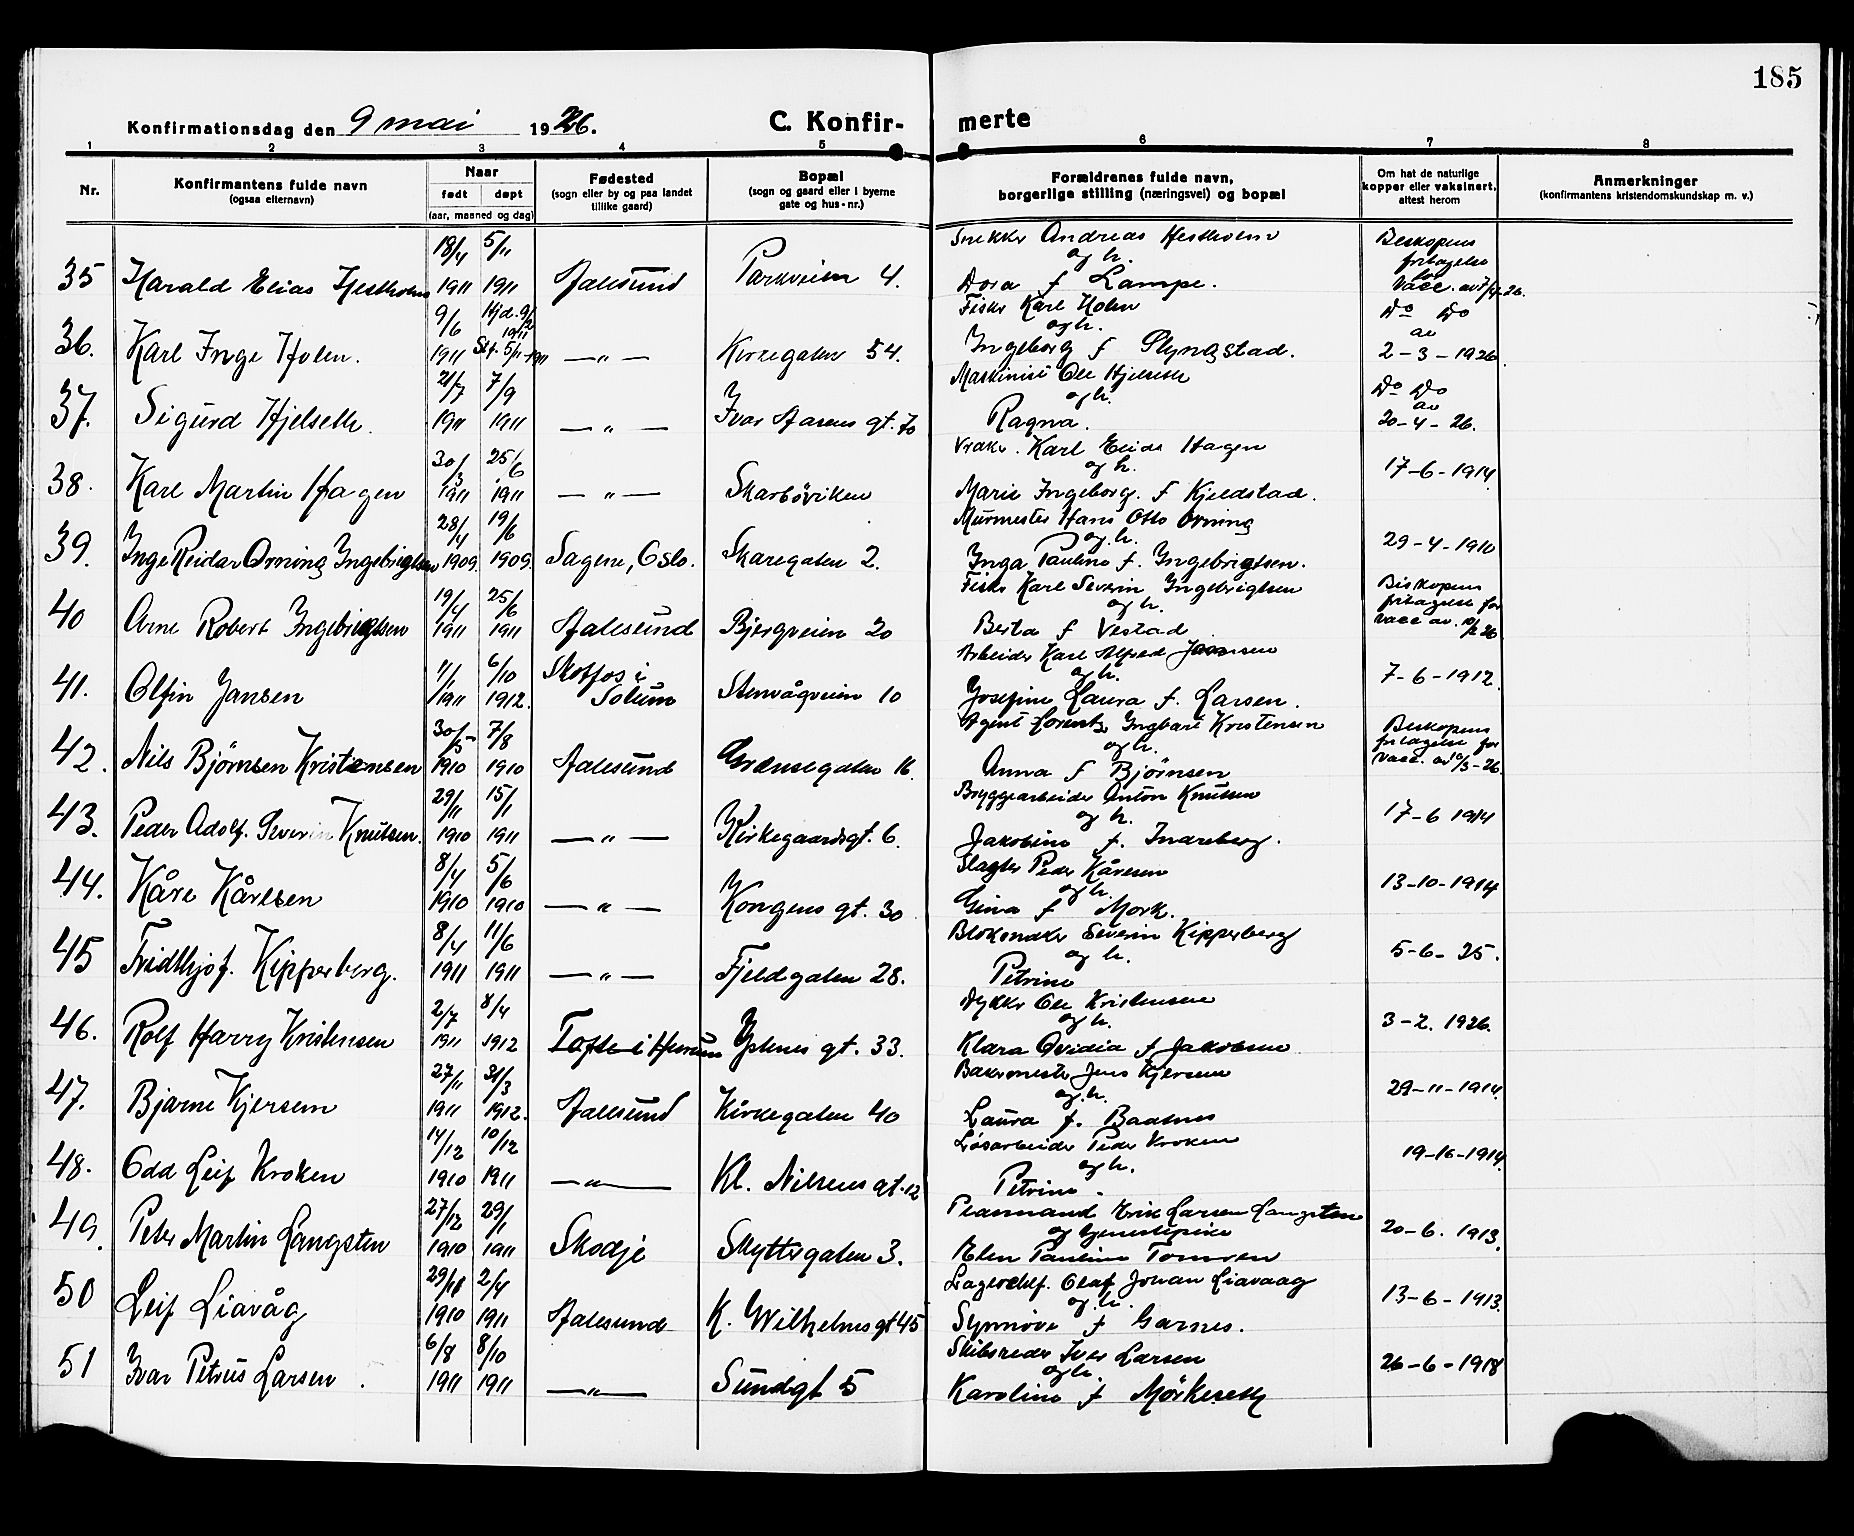 185
Konfirmationsdag den 9 mai 1926.
C. Konfirmerte
1 2 3 4 5 6 7 8
Nr.
Konfirmantens fulde navn
(ogsaa efternavn)
Naar
født døpt
(aar, maaned og dag)
Fødested
(sogn eller by og paa landet
tillike gaard)
Bopæl
(sogn og gaard eller i byerne
gate og hus-nr.)
Forældrenes fulde navn,
borgerlige stilling (næringsvei) og bopæl
Om hat de naturlige
kopper eller vaksinert,
attest herom
Anmerkninger
(konfirmantens kristendomskundskap m. v.)
18/4 5/11 Snekker Andreas Hestholm Biskopens
og h. fritagelse
35 Harald Elias Hestholm 1911 1911 Aalesund Parkveien 4. Dora f Lampe. for vacc. av
9/6 Hjd. Fisker Karl Holen Do Do
og h. av
36. Karl Inge Holen. 1911 Kirkegaten 54. Ingeborg f Slyngstad. 2-3-1926
21/7 7/9 Maskinist Ole Hjelseth Do Do
og h. av
37. Sigurd Hjelseth. 1911 1911 —"— Ivar Aasens gt. 70 Ragna. 20-4-26.
30/3 25/6 Vraker. Karl Elias Hagen
og h. 17-6-1914
38. Karl Martin Hagen 1911 1911 —"— Skarbøviken Marie Ingeborg. f Kjeldstad.
28/4 19/6 Murmester Hans Otto Orning
og h. 29-4-1910
39. Inge Reidar Orning Ingebrigtsen 1909 1909. Sagene, Oslo. Skaregaten 2. Inga Pauline f. Ingebrigtsen.
19/4 25/6 Fisker Karl Severin Ingebrigtsen Biskopens
og h. fritagelse for
40 Arne Robert Ingebrigtsen 1911 1911 Aalesund Bjergveien 20 Berta f Vestad vacc av.
1/1 6/10 Skotfos i Arbeider Karl Alfred Jansen
og h. 7-6-1912
41. Olfin Jansen 1911 1912. Solum Stenvågveien 10 Josefine Laura f. Larsen.
30/5 7/8 Agent Lorentz Ingbart Kristensen Biskopens
og h. fritagelse for
42. Nils Bjørnsen Kristensen 1910 1910 Aalesund Grensegaten 16. Anna f Bjørnsen vacc. av
29/11 15/1 Bryggearbeider Anton Knutsen
og h. 17-6 1914
43. Peder Adolf. Severin Knutsen. 1910 1911 —"— Kirkegaardsgt. 6. Jakobine f. Indreberg.
8/4 5/6 Slagter Peder Kåresen
og h. 13-10-1914
44. Kåre Kåresen 1910 1910 —"— Kongens gt. 30 Gina f Mork.
8/4 11/6 Blokmaker Severin Kipperberg
og h. 5-6-25.
45 Fridthjof. Kipperberg. 1911 1911 —"— Fjeldgaten 28. Petrine
2/7 8/4 Dykker Ole Kristensen
og h. 3-2. 1926.
46. Rolf Harry Kristensen 1911 1912 Tofte i Hurum Ystenes gt. 33. Klara Ovidia f Jakobsen
27/11 31/3 Bakermester Jens Kjersem
og h. 29-11-1914
47. Bjarne Kjersem 1911 1912. Aalesund Kirkegaten 40 Laura f. Baatnes
14/12 10/12 Løsarbeider Peder Kroken
og h. 19-10-1914
48. Odd Leif Kroken 1910 1911 —"— Kl. Nilsens gt. 12 Petrine.
27/12 29/1 Pleiemand Erik Larsen Langsten
og tjenestepike 20-6. 1913.
49. Peter Martin Langsten 1910 1911 Skodje Skyttergaten 3. Elen Pauline Tomren
29/10 2/4 Lagerchef. Olaf Johan Liavaag
og h. 13-6-1913.
50 Leif Liavåg 1910 1911 Aalesund K. Wilhelmsgt 45 Synnøve f Garnes.
6/8 8/10 Skibsreder Iver Larsen
og h. 26-6-1918
51 Ivar Petrus Larsen. 1911 1911 —"— Sundgt 5 Karoline f Mørkeseth